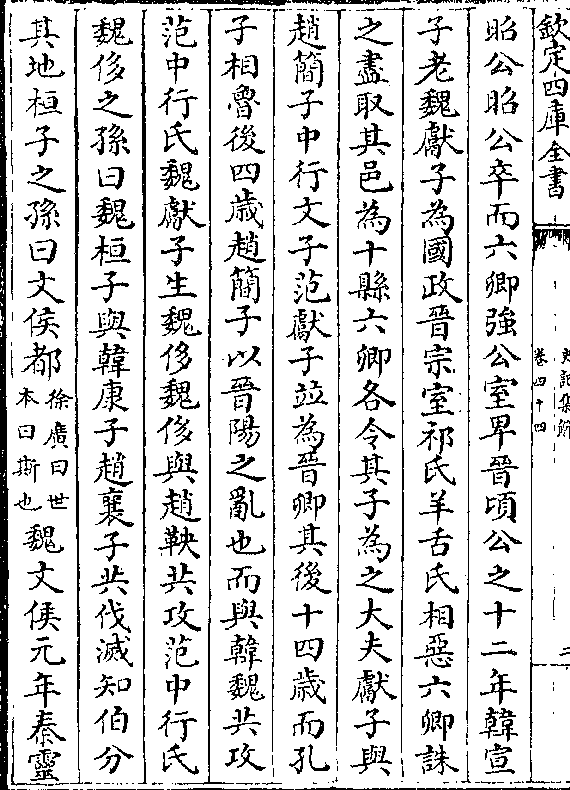 欽定四庫全書
史記集解
卷四十四
二
昭公昭公卒而六卿強公室卑晉頃公之十二年韓宣
子老魏獻子為國政晉宗室祁氏羊舌氏相惡六卿誅
之盡取其邑為十縣六卿各令其子為之大夫獻子與
趙簡子中行文子范獻子竝為晉卿其後十四歲而孔
子相魯後四歲趙簡子以晉陽之亂也而與韓魏共攻
范中行氏魏獻子生魏侈魏侈與趙鞅共攻范中行氏
魏侈之孫曰魏桓子與韓康子趙襄子共伐滅知伯分
其地桓子之孫曰文侯都徐廣曰世本曰斯也魏文侯元年秦靈